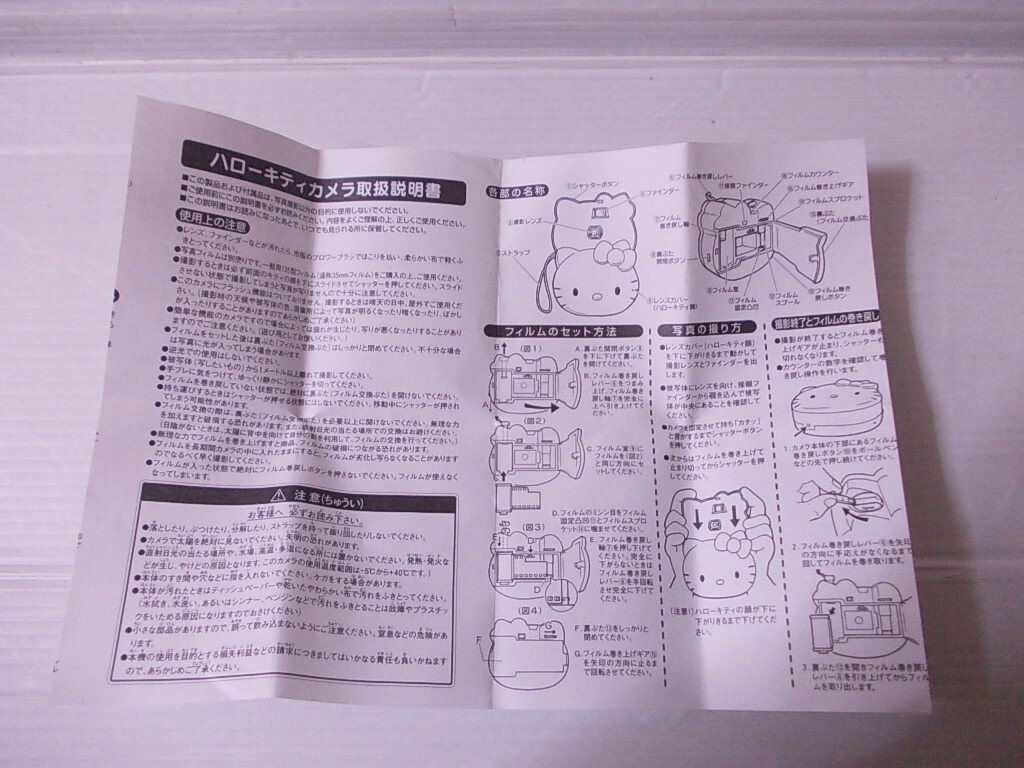 ハローキティカメラ取扱説明書
■この製品および付属品は、写真撮影以外の目的に使用しないでください。
■ご使用前にこの説明書を必ずお読みください。内容をよくご理解の上、正しくご使用ください。
■この説明書はお読みになったあとで、いつでも見られる所に保管してください。
使用上の注意
●レンズ、ファインダーなどが汚れたら、市販のブロワーブラシでほこりを払い、柔らかい布で軽くふ
きとってください。
●写真フィルムは別売りです。一般用135型フィルム(通称35mmフィルム)をご購入の上、ご使用ください。
●撮影するときは必ず前面のキティの顔を下にスライドさせてシャッターを押してください。スライド
させない状態で撮影してしまうと写真が写りませんので十分に注意してください。
●このカメラにフラッシュ機能はついておりません。撮影するときは晴天の日中、屋外でご使用くだ
さい。(撮影時の天候や被写体の色、撮影場所によって写真が明るくなったり暗くなったり、ぼかし
が入ったりすることがありますのであらかじめご了承ください)
●簡単な機能のカメラですので場合によっては振れが生じたり、写りが悪くなったりすることがあり
ますのでご注意ください。(遊び用としてお使いください。)
●フィルムをセットした後は裏ぶた(フィルム交換ぶた)はしっかりと閉めてください。不十分な場合
は写真に光が入ってしまう場合があります。
●逆光での使用はしないでください。
●被写体(写したいもの)から1メートル以上離れて撮影してください。
●手ブレに気をつけて、ゆっくり静かにシャッターを切ってください。
●フィルムを巻き戻していない状態では、絶対に裏ぶた(フィルム交換ぶた)を開けないでください。
●持ち運びするときはシャッターが押せる状態にはしないでください。移動中にシャッターが押され
てしまう可能性があります。
●フィルム交換の際は、裏ぶた(フィルム交換ぶた)を必要以上に開けないでください。無理な力
を加えますと破損する恐れがあります。また、直射日光の当たる場所での交換はお避けください。
(日陰がないときは、太陽に背中を向けて自分の影を利用して、フィルムの交換を行ってください。)
●無理な力でフィルムを巻き上げますと部品、フィルムの破損につながる恐れがあります。
●フィルムを長期間カメラの中に入れたままにすると、フィルムが劣化し写らなくなることがあります
のでなるべく早く撮影してください。
●フィルムが入った状態で絶対にフィルム巻き戻しボタンを押さないでください。フィルムが使えなく
なってしまいます。
⚠ 注意(ちゅうい)
お客様へ 必ずお読み下さい。
●落としたり、ぶつけたり、分解したり、ストラップを持って振り回したりしないでください。
●カメラで太陽を絶対に見ないでください。失明の恐れがあります。
●直射日光の当たる場所や、水場、高温・多湿になる所には置かないでください。発熱・発火な
どが生じ、やけどの原因となります。このカメラの使用温度範囲は-5℃から+40℃です。)
●本体のすき間や穴などに指を入れないでください。ケガをする場合があります。
●本体が汚れたときはティッシュペーパーや乾いたやわらかい布で汚れをふきとってください。
(水拭き、水洗い、あるいはシンナー、ベンジンなどで汚れをふきとることは故障やプラスチッ
クをいためる原因になりますのでおさけください)
●小さな部品がありますので、誤って飲み込まないようにご注意ください。窒息などの危険があ
ります。
●本機の使用を目的とする損失利益などの請求につきましてはいかなる責任も負いかねます
ので、あらかじめご了承ください。
各部の名称
①シャッターボタン
②ファインダー
③撮影レンズ
⑤ストラップ
④レンズカバー
(ハローキティ顔)
⑥フィルム巻き戻しレバー
⑦フィルム
巻き戻し軸
⑧裏ぶた
開閉ボタン
⑨フィルム室
⑩フィルム
スプール
⑪フィルム
固定凸凹
⑫フィルム巻き
戻しボタン
⑬裏ぶた
(フィルム交換ぶた)
⑭フィルムスプロケット
⑮フィルム巻き上げギア
⑯フィルムカウンター
⑰接眼ファインダー
フィルムのセット方法
(図1)
B
A
A. 裏ぶた開閉ボタン⑧
を下に下げて裏ぶた
を開けてください。
B. フィルム巻き戻し
レバー⑥をつまみ
上げ、フィルム巻き
戻し軸⑦を完全に
上へ引き上げてくだ
さい。
(図2)
C
C. フィルム室⑨に
フィルムを(図2)
と同じ方向にセ
ットしてください。
D. フィルムのミシン目をフィルム
固定凸凹⑪とフィルムスプロ
ケット⑭に噛ませてください。
(図3)
E
D
E. フィルム巻き戻し
軸⑦を押し下げて
ください。完全に
下がらないときは
フィルム巻き戻し
レバー⑥を半回転
させ完全に下げて
ください。
(図4)
F
G
F. 裏ぶた⑬をしっかりと
閉めてください。
G. フィルム巻き上げギア⑮
を矢印の方向に止るま
で回転させてください。
写真の撮り方
●レンズカバー(ハローキティ顔)
を下に下がりきるまで動かして
撮影レンズとファインダーを出
します。
●被写体にレンズを向け、接眼フ
ァインダーから覗き込んで被写
体が中央にあることを確認して
ください。
●カメラを固定させて持ち「カチッ」
と音がするまでシャッターボタン
を押してください。
●次からはフィルムを巻き上げて
止まり切ってからシャッターを押
してください。
(注意!)ハローキティの顔が下に
下がりきるまで下げてください。
撮影終了とフィルムの巻き戻し
●撮影が終了するとフィルム巻き
上げギアが止まり、シャッターも
切れなくなります。
●カウンターの数字を確認して巻
き戻し操作を行います。
1. カメラ本体の下部にあるフィルム
巻き戻しボタン⑫をボールペン
などの先で押し続けてください。
2. フィルム巻き戻しレバー⑥を矢印
の方向に手応えがなくなるまで
回してフィルムを巻き取ります。
3. 裏ぶた⑬を開きフィルム巻き戻し
レバー⑥を引き上げてからフィル
ムを取り出します。